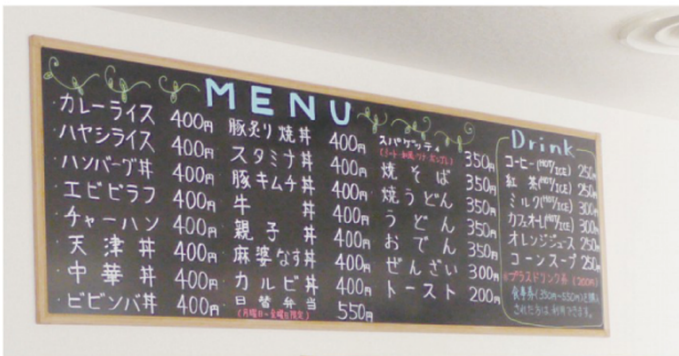 MENU
カレーライス 400円
ハヤシライス 400円
ハンバーグ丼 400円
エビピラフ 400円
チャーハン 400円
天津丼 400円
中華丼 400円
ビビンバ丼 400円
豚炙り焼丼 400円
スタミナ丼 400円
豚キムチ丼 400円
牛丼 400円
親子丼 400円
麻婆なす丼 400円
カルビ丼 400円
日替弁当 550円
(月曜日~金曜日限定)
スパゲッティ 350円
焼そば 350円
焼うどん 350円
うどん 350円
おでん 350円
ぜんざい 300円
トースト 200円
Drink
コーヒー(HOT/ICE) 250円
紅茶(HOT/ICE) 250円
ミルク(HOT/ICE) 300円
カフェオーレ(HOT/ICE) 300円
オレンジジュース 250円
コーンスープ 250円
※プラスドリンク券 (200円)
食事券(350円~550円)を購入
された方は利用できます。